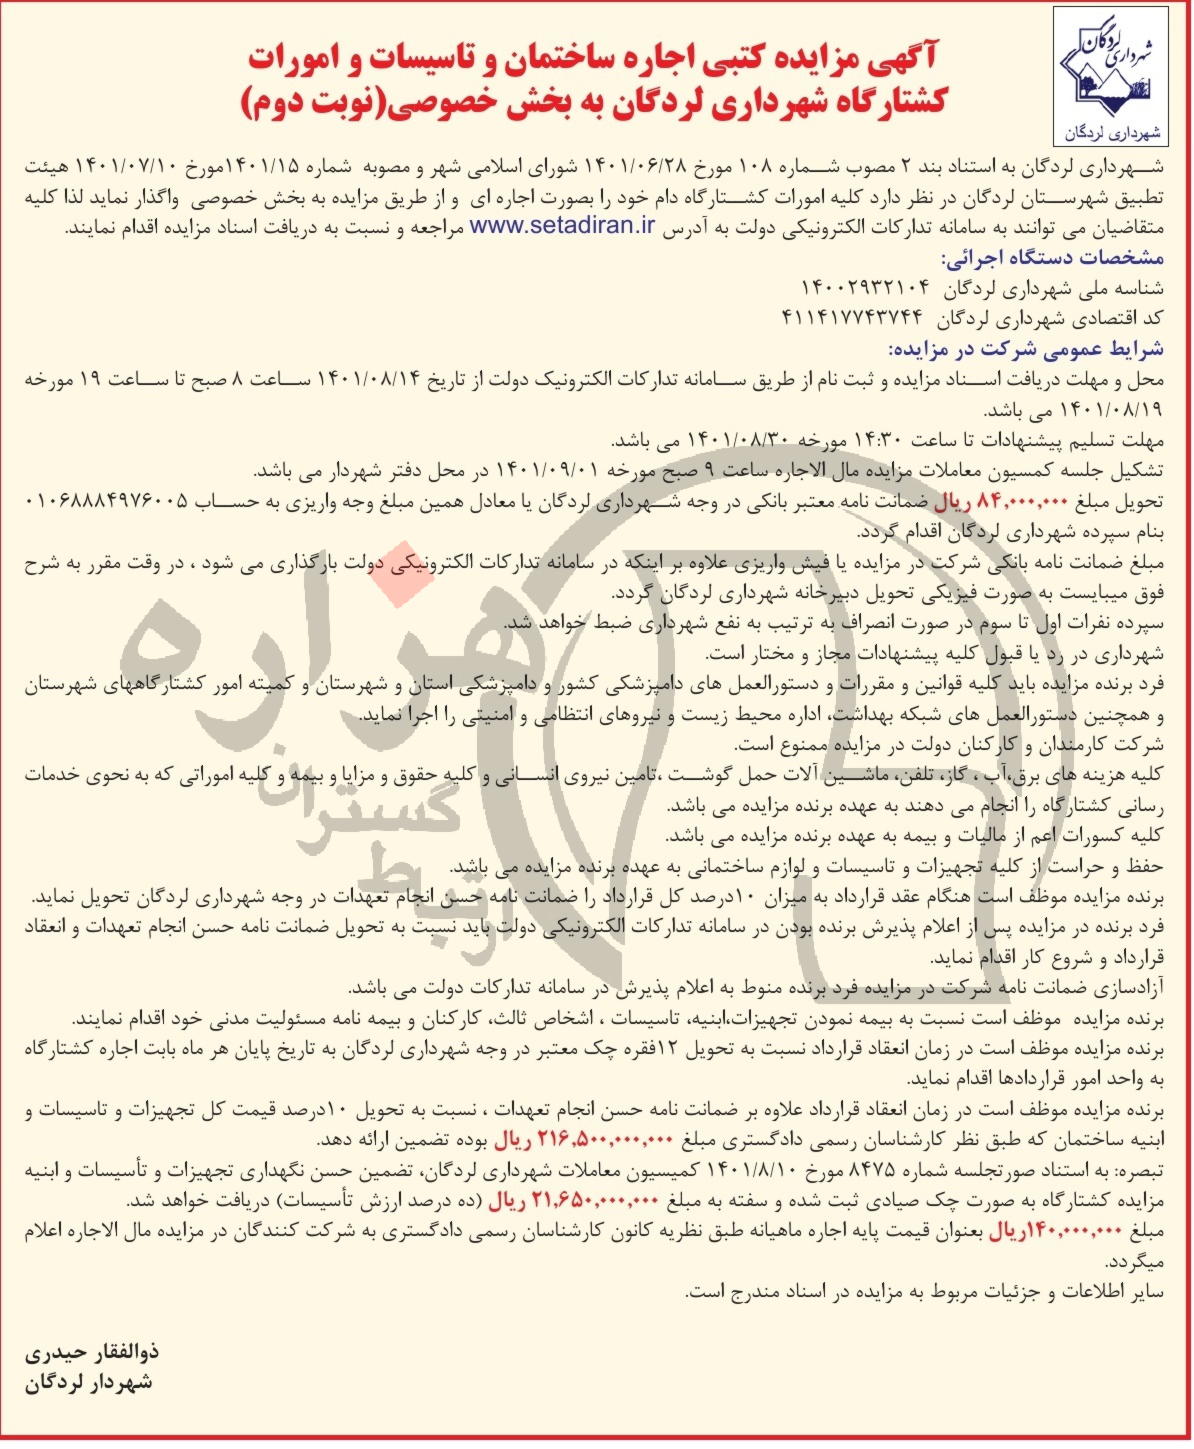 شهرداری لردگان
شهرداری لردگان
آگهی مزایده کتبی اجاره ساختمان و تاسیسات و امورات
کشتارگاه شهرداری لردگان به بخش خصوصی(نوبت دوم)
شهرداری لردگان به استناد بند ۲ مصوب شماره ۱۰۸ مورخ ۱۴۰۱/۰۶/۲۸ شورای اسلامی شهر و مصوبه شماره ۱۴۰۱/۱۵مورخ ۱۴۰۱/۰۷/۱۰ هیئت
تطبیق شهرستان لردگان در نظر دارد کلیه امورات کشتارگاه دام خود را بصورت اجاره ای و از طریق مزایده به بخش خصوصی واگذار نماید لذا کلیه
متقاضیان می توانند به سامانه تدارکات الکترونیکی دولت به آدرس www.setadiran.ir مراجعه و نسبت به دریافت اسناد مزایده اقدام نمایند.
مشخصات دستگاه اجرائی:
شناسه ملی شهرداری لردگان ۱۴۰۰۲۹۳۲۱۰۴
کد اقتصادی شهرداری لردگان ۴۱۱۴۱۷۷۴۳۷۴۴
شرایط عمومی شرکت در مزایده:
محل و مهلت دریافت اسناد مزایده و ثبت نام از طریق سامانه تدارکات الکترونیک دولت از تاریخ ۱۴۰۱/۰۸/۱۴ ساعت ۸ صبح تا ساعت ۱۹ مورخه
۱۴۰۱/۰۸/۱۹ می باشد.
مهلت تسلیم پیشنهادات تا ساعت ۱۴:۳۰ مورخه ۱۴۰۱/۰۸/۳۰ می باشد.
تشکیل جلسه کمسیون معاملات مزایده مال الاجاره ساعت ۹ صبح مورخه ۱۴۰۱/۰۹/۰۱ در محل دفتر شهردار می باشد.
تحویل مبلغ ۸۴,۰۰۰,۰۰۰ ریال ضمانت نامه معتبر بانکی در وجه شهرداری لردگان یا معادل همین مبلغ وجه واریزی به حساب ۰۱۰۶۸۸۸۴۹۷۶۰۰۵
بنام سپرده شهرداری لردگان اقدام گردد.
مبلغ ضمانت نامه بانکی شرکت در مزایده یا فیش واریزی علاوه بر اینکه در سامانه تدارکات الکترونیکی دولت بارگذاری می شود ، در وقت مقرر به شرح
فوق میبایست به صورت فیزیکی تحویل دبیرخانه شهرداری لردگان گردد.
سپرده نفرات اول تا سوم در صورت انصراف به ترتیب به نفع شهرداری ضبط خواهد شد.
شهرداری در رد یا قبول کلیه پیشنهادات مجاز و مختار است.
فرد برنده مزایده باید کلیه قوانین و مقررات و دستورالعمل های دامپزشکی کشور و دامپزشکی استان و شهرستان و کمیته امور کشتارگاههای شهرستان
و همچنین دستورالعمل های شبکه بهداشت، اداره محیط زیست و نیروهای انتظامی و امنیتی را اجرا نماید.
شرکت کارمندان و کارکنان دولت در مزایده ممنوع است.
کلیه هزینه های برق،آب ، گاز، تلفن، ماشین آلات حمل گوشت ،تامین نیروی انسانی و کلیه حقوق و مزایا و بیمه و کلیه اموراتی که به نحوی خدمات
رسانی کشتارگاه را انجام می دهند به عهده برنده مزایده می باشد.
کلیه کسورات اعم از مالیات و بیمه به عهده برنده مزایده می باشد.
حفظ و حراست از کلیه تجهیزات و تاسیسات و لوازم ساختمانی به عهده برنده مزایده می باشد.
برنده مزایده موظف است هنگام عقد قرارداد به میزان ۱۰درصد کل قرارداد را ضمانت نامه حسن انجام تعهدات در وجه شهرداری لردگان تحویل نماید.
فرد برنده در مزایده پس از اعلام پذیرش برنده بودن در سامانه تدارکات الکترونیکی دولت باید نسبت به تحویل ضمانت نامه حسن انجام تعهدات و انعقاد
قرارداد و شروع کار اقدام نماید.
آزادسازی ضمانت نامه شرکت در مزایده فرد برنده منوط به اعلام پذیرش در سامانه تدارکات دولت می باشد.
برنده مزایده موظف است نسبت به بیمه نمودن تجهیزات،ابنیه، تاسیسات ، اشخاص ثالث، کارکنان و بیمه نامه مسئولیت مدنی خود اقدام نمایند.
برنده مزایده موظف است در زمان انعقاد قرارداد نسبت به تحویل ۱۲فقره چک معتبر در وجه شهرداری لردگان به تاریخ پایان هر ماه بابت اجاره کشتارگاه
به واحد امور قراردادها اقدام نماید.
برنده مزایده موظف است در زمان انعقاد قرارداد علاوه بر ضمانت نامه حسن انجام تعهدات ، نسبت به تحویل ۱۰درصد قیمت کل تجهیزات و تاسیسات و
ابنیه ساختمان که طبق نظر کارشناسان رسمی دادگستری مبلغ ۲۱۶,۵۰۰,۰۰۰,۰۰۰ ریال بوده تضمین ارائه دهد.
تبصره: به استناد صورتجلسه شماره ۸۴۷۵ مورخ ۱۴۰۱/۸/۱۰ کمیسیون معاملات شهرداری لردگان، تضمین حسن نگهداری تجهیزات و تأسیسات و ابنیه
مزایده کشتارگاه به صورت چک صیادی ثبت شده و سفته به مبلغ ۲۱,۶۵۰,۰۰۰,۰۰۰ ریال (ده درصد ارزش تأسیسات) دریافت خواهد شد.
مبلغ ۱۴۰,۰۰۰,۰۰۰ریال بعنوان قیمت پایه اجاره ماهیانه طبق نظریه کانون کارشناسان رسمی دادگستری به شرکت کنندگان در مزایده مال الاجاره اعلام
میگردد.
سایر اطلاعات و جزئیات مربوط به مزایده در اسناد مندرج است.
ذوالفقار حیدری
شهردار لردگان
هزاره
گستران
ارتباط